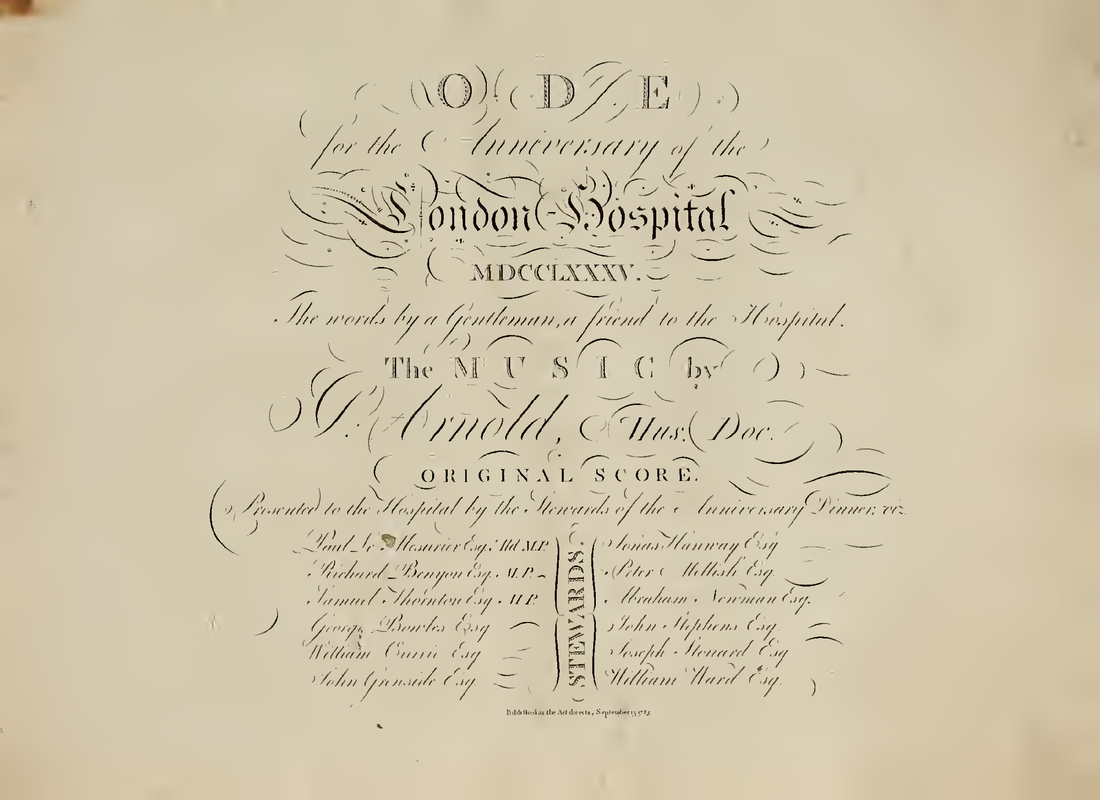 ODE
for the Anniversary of the
London-Hospital
MDCCLXXXV.
The words by a Gentleman, a friend to the Hospital.
The MUSIC by
S. Arnold, Mus. Doc.
ORIGINAL SCORE.
Presented to the Hospital by the Stewards of the Anniversary Dinner, viz.
Paul Le Mesurier Esq. Ald. M.P.
Richard Benyon Esq. M.P.
Samuel Thornton Esq. M.P.
George Bowles Esq
William Currie Esq
John Grenside Esq
STEWARDS.
Jonas Hanway Esq
Peter Mellish Esq.
Abraham Newman Esq.
John Stephens Esq.
Joseph Stonard Esq
William Ward Esq.
Published as the Act directs, September